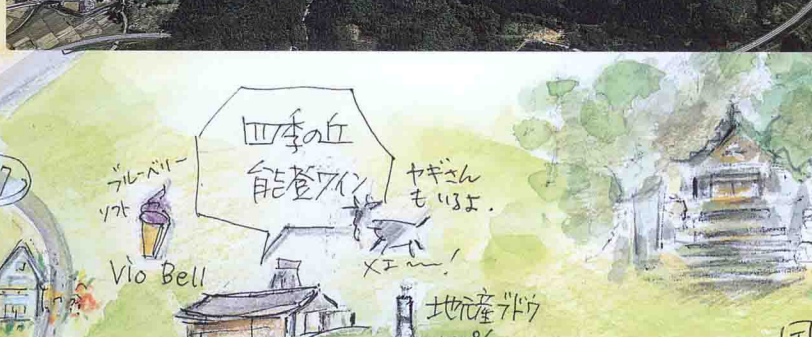 四季の丘
能登ワイン
ブルーベリー
ソフト
Vio Bell
ヤギさん
も いるよ.
メエ〜〜!
地元産ブドウ